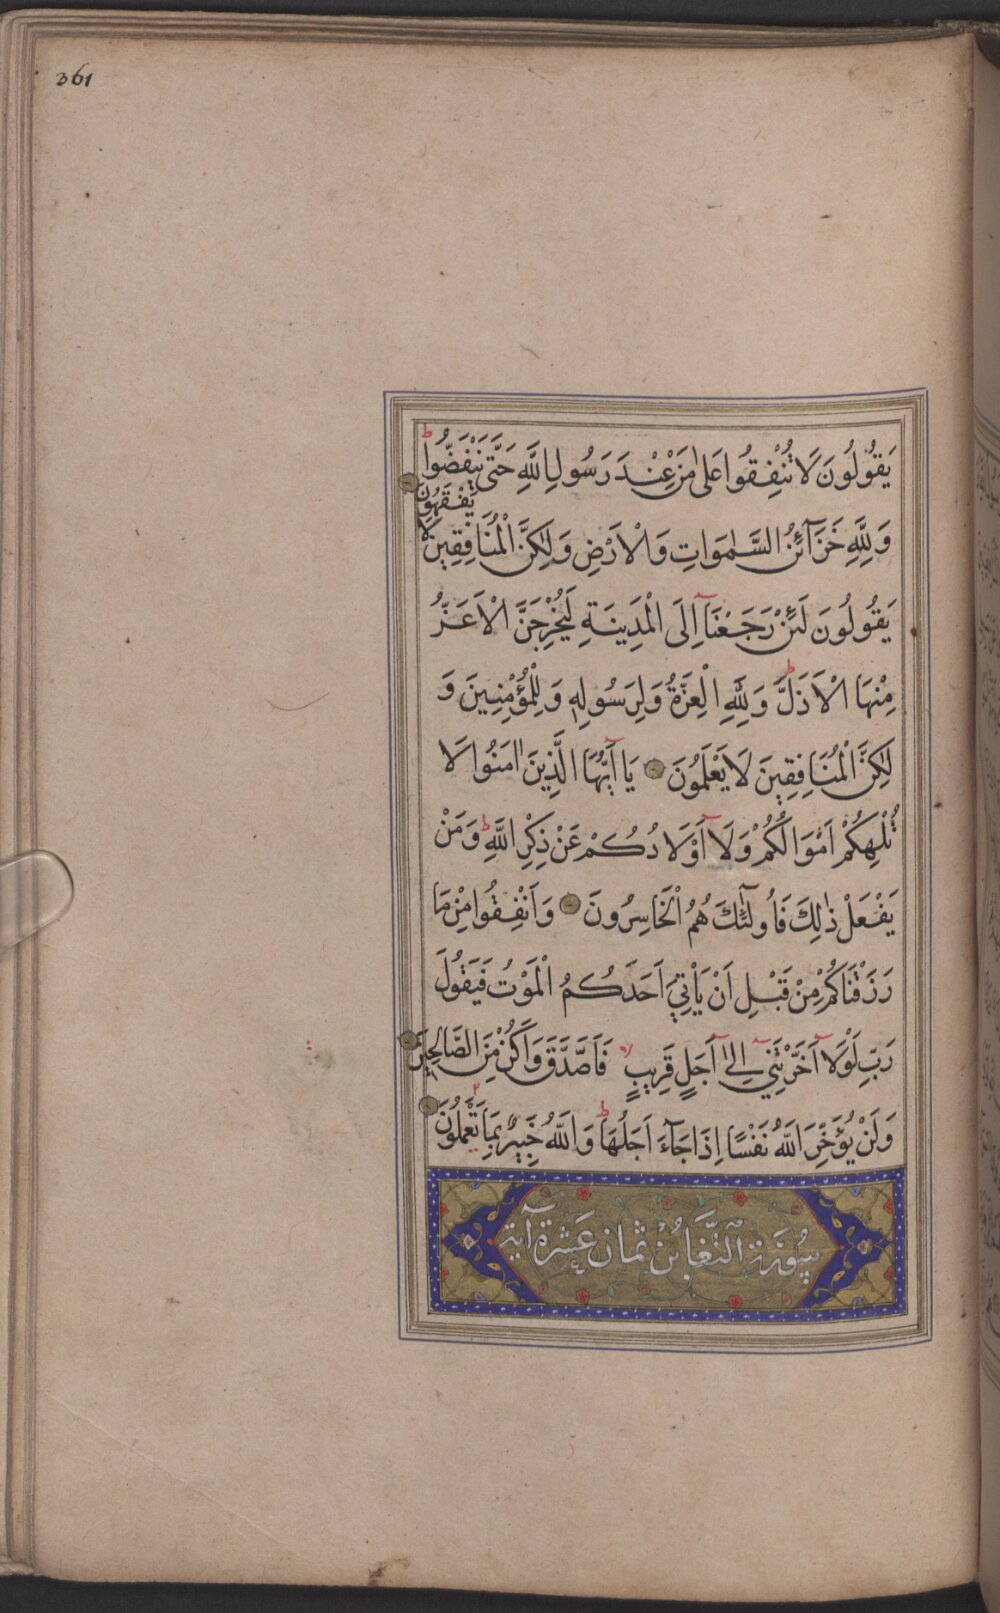 361
يَقُولُونَ لَا تُنْفِقُوا عَلٰى مَنْ عِنْدَ رَسُولِ اللَّهِ حَتَّى يَنْفَضُّوا ط
وَلِلَّهِ خَزَآئِنُ السَّمٰوَاتِ وَالْاَرْضِ وَلٰكِنَّ الْمُنَافِقِينَ لَا يَفْقَهُونَ
يَقُولُونَ لَئِنْ رَجَعْنَآ اِلَى الْمَدِينَةِ لَيُخْرِجَنَّ الْاَعَزُّ
مِنْهَا الْاَذَلَّ ط وَلِلَّهِ الْعِزَّةُ وَلِرَسُولِهِ وَلِلْمُؤْمِنِينَ وَ
لٰكِنَّ الْمُنَافِقِينَ لَا يَعْلَمُونَ يَآ اَيُّهَا الَّذِينَ اٰمَنُوا لَا
تُلْهِكُمْ اَمْوَالُكُمْ وَلَآ اَوْلَادُكُمْ عَنْ ذِكْرِ اللَّهِ ط وَمَنْ
يَفْعَلْ ذٰلِكَ فَاُولٰٓئِكَ هُمُ الْخَاسِرُونَ وَاَنْفِقُوا مِنْ مَا
رَزَقْنَاكُمْ مِنْ قَبْلِ اَنْ يَاْتِيَ اَحَدَكُمُ الْمَوْتُ فَيَقُولَ
رَبِّ لَوْلَآ اَخَّرْتَنِيٓ اِلٰٓى اَجَلٍ قَرِيبٍ لا فَاَصَّدَّقَ وَاَكُنْ مِنَ الصَّالِحِينَ
وَلَنْ يُؤَخِّرَ اللَّهُ نَفْسًا اِذَا جَآءَ اَجَلُهَا ط وَاللَّهُ خَبِيرٌ بِمَا تَعْمَلُونَ
سُورَة التَّغَابُن ثمان عَشرة آية